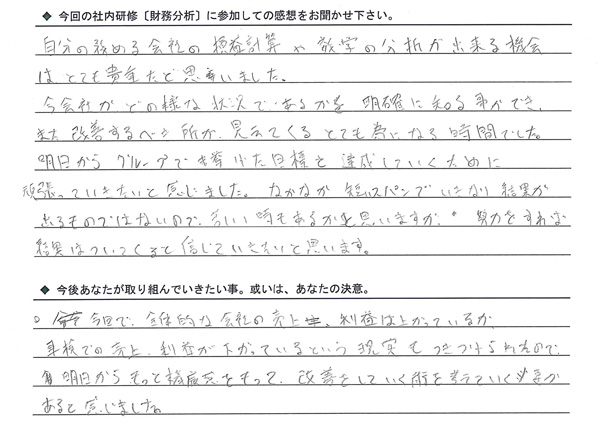 ◆ 今回の社内研修〔財務分析〕に参加しての感想をお聞かせ下さい。
自分の務める会社の損益計算や数字の分析が出来る機会
はとても貴重だと思いました。
今会社がどの様な状況であるかを明確に知る事ができ、
また改善するべき所が、見えてくるとても為になる時間でした。
明日からグループで挙げた目標を達成していくために
頑張っていきたいと感じました。なかなか短いスパンでいきなり結果が
出るものではないので、苦しい時もあるかと思いますが、努力をすれば
結果はついてくると信じていきたいと思います。
◆ 今後あなたが取り組んでいきたい事。或いは、あなたの決意。
○ 今回で、全体的な会社の売上、利益は上がっているが、
車検での売上、利益が下がっているという現実もつきつけられたので、
明日からもっと危機感をもって、改善をしていく術を考えていく必要が
あると感じました。